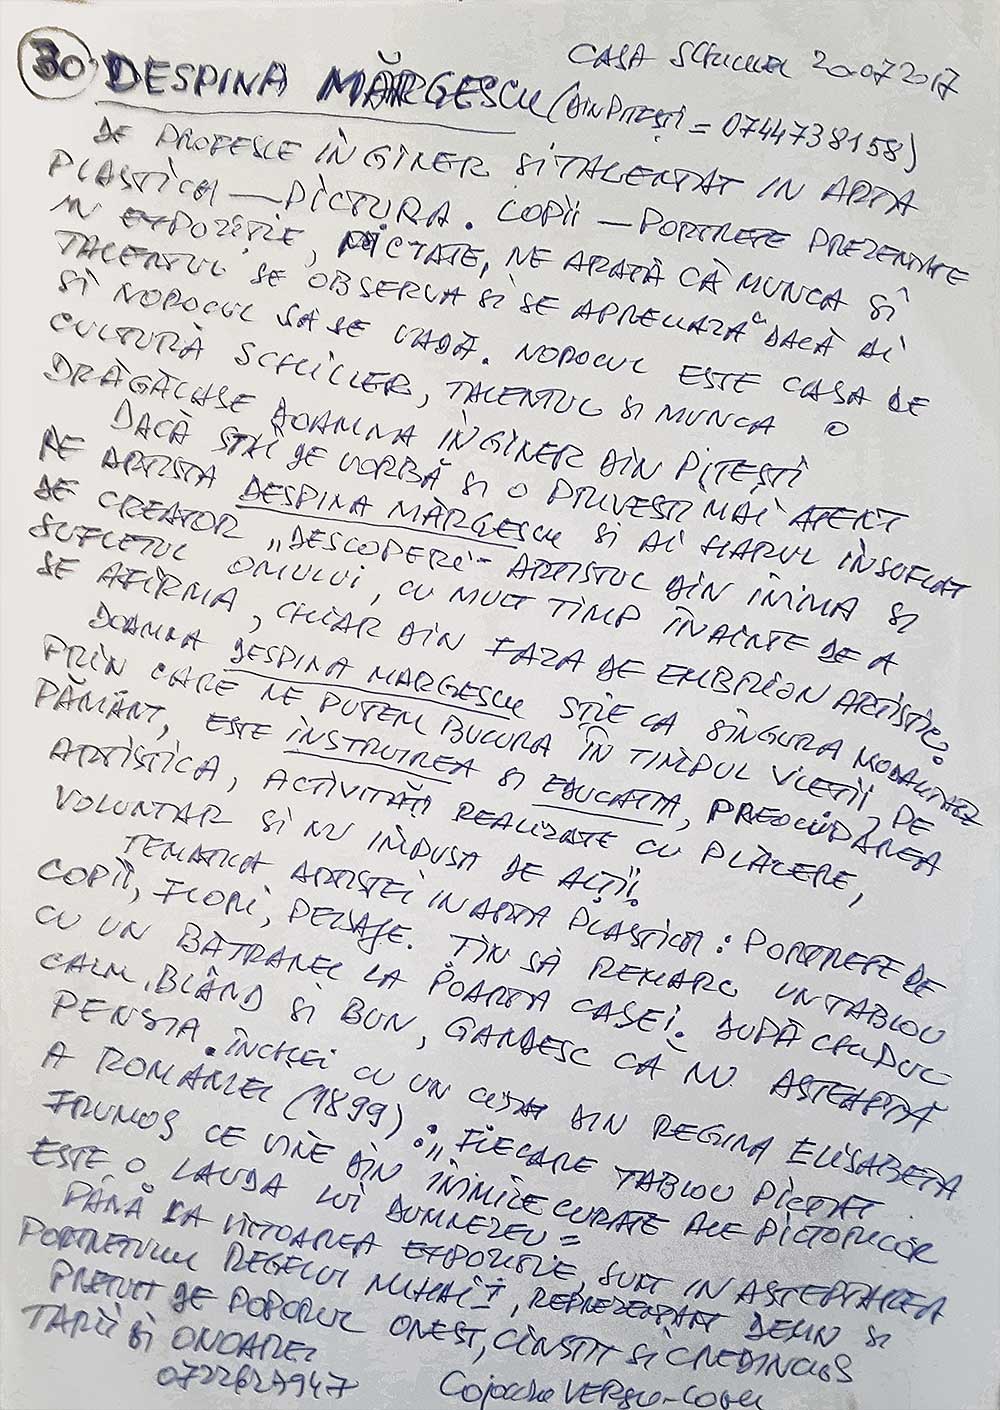 CASA SCHILLER 20072017
30. DESPINA MĂRGESCU (DIN PITEȘTI = 0744738158)
DE PROFESIE INGINER SI TALENTAT IN ARTA
PLASTICA — PICTURA. COPII — PORTRETE PREZENTATE
IN EXPOZIȚIE, PICTATE, NE ARATĂ CĂ MUNCA SI
TALENTUL SE OBSERVA SI SE APRECIAZA DACĂ AI
SI NOROCUL SA SE VADĂ. NOROCUL ESTE CASA DE
CULTURĂ SCHILLER, TALENTUL SI MUNCA O
DRĂGĂLASE DOAMNA INGINER DIN PITEȘTI
DACĂ STAI DE VORBĂ SI O PRIVESTI MAI ATENT
PE ARTISTA DESPINA MĂRGESCU SI AI HARUL INSUFLAT
DE CREATOR „DESCOPERI" ARTISTUL DIN INIMA SI
SUFLETUL OMULUI, CU MULT TIMP ÎNAINTE DE A
SE AFIRMA, CHIAR DIN FAZA DE EMBRION ARTISTIC.
DOAMNA DESPINA MARGESCU STIE CA SINGURA MODALITATE
PRIN CARE NE PUTEM BUCURA ÎN TIMPUL VIETII, PE
PĂMÂNT, ESTE INSTRUIREA SI EDUCATIA, PREOCUPAREA
ARTISTICA, ACTIVITĂȚI REALIZATE CU PLĂCERE,
VOLUNTAR SI NU IMPUSA DE ALȚII.
TEMATICA ARTISTEI IN ARTA PLASTICA: PORTRETE DE
COPII, FLORI, PEISAJE. TIN SĂ REMARC UN TABLOU
CU UN BĂTRANEL LA POARTA CASEI. DUPĂ CHIPUL
CALM, BLÂND SI BUN, GANDESC CĂ NU AȘTEAPTĂ
PENSIA. ÎNCHEI CU UN CITAT DIN REGINA ELISABETA
A ROMÂNIEI (1899): „FIECARE TABLOU PICTAT
FRUMOS CE VINE DIN INIMILE CURATE ALE PICTORILOR
ESTE O LAUDA LUI DUMNEZEU =
PÂNĂ LA VIITOAREA EXPOZITIE, SUNT IN AȘTEPTAREA
PORTRETULUI REGELUI MIHAI I, REPREZENTANT DEMN SI
PRETUIT DE POPORUL ONEST, CINSTIT SI CREDINCIOS
TARII SI ONOAREI
0722627947 VERGIL-COSTI